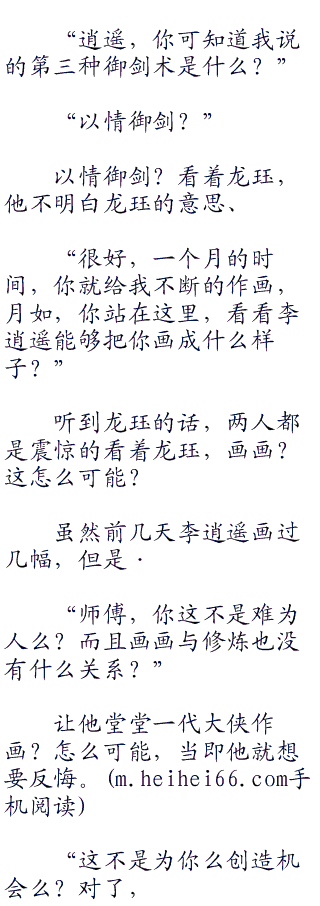 “逍遥，你可知道我说
的第三种御剑术是什么？”
“以情御剑？”
以情御剑？看着龙珏，
他不明白龙珏的意思、
“很好，一个月的时
间，你就给我不断的作画，
月如，你站在这里，看看李
逍遥能够把你画成什么样
子？”
听到龙珏的话，两人都
是震惊的看着龙珏，画画？
这怎么可能？
虽然前几天李逍遥画过
几幅，但是·
“师傅，你这不是难为
人么？而且画画与修炼也没
有什么关系？”
让他堂堂一代大侠作
画？怎么可能，当即他就想
要反悔。(m.heihei66.com手
机阅读)
“这不是为你么创造机
会么？对了，